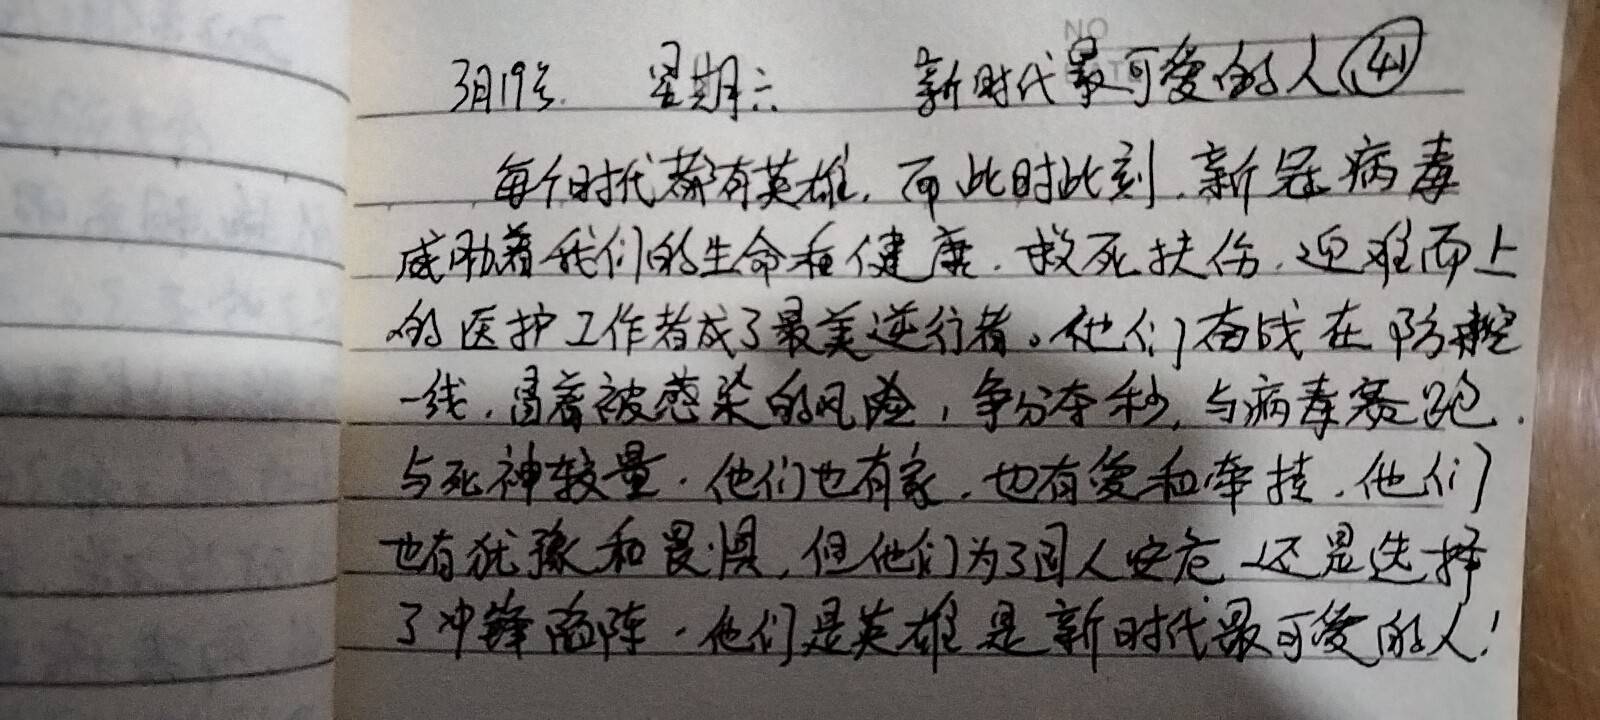 NO
3月19号. 星期六 新时代最可爱的人 41
每个时代都有英雄，而此时此刻，新冠病毒
威胁着我们的生命和健康．救死扶伤．迎难而上
的医护工作者成了最美逆行者。他们奋战在防控
一线，冒着被感染的风险，争分夺秒，与病毒赛跑．
与死神较量．他们也有家．也有爱和牵挂．他们
也有犹豫和畏惧，但他们为了国人安危 还是选择
了冲锋陷阵．他们是英雄是新时代最可爱的人！